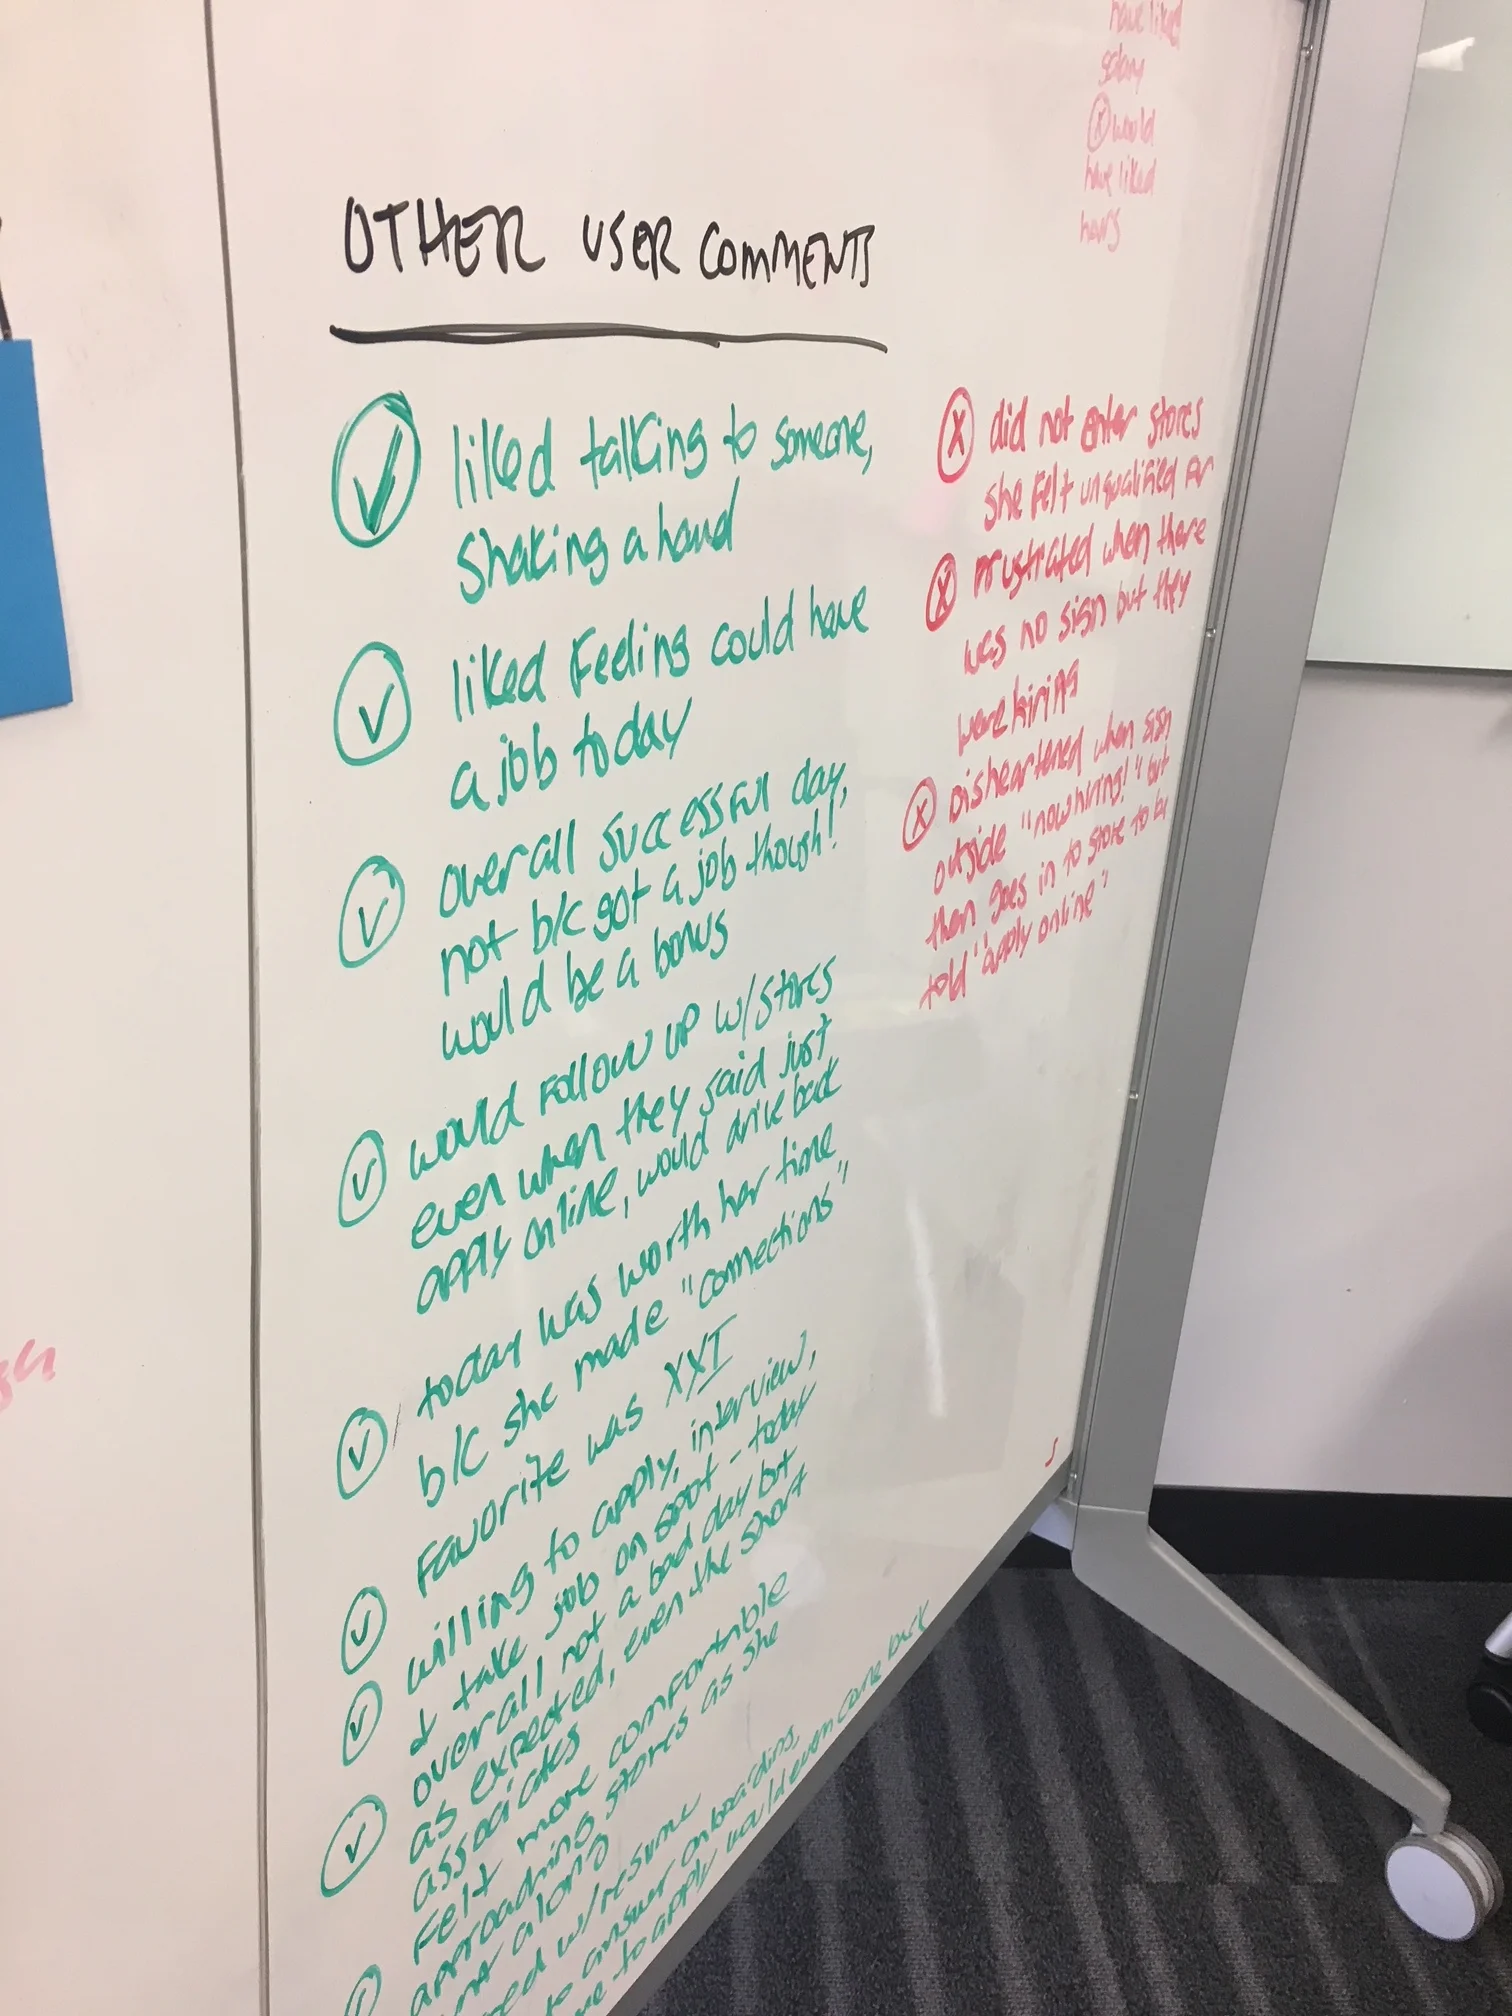 have liked
salary
ⓧ would
have liked
hours
OTHER USER COMMENTS
✓ liked talking to someone,
shaking a hand
✓ liked feeling could have
a job today
✓ overall successful day,
not b/c got a job though!
would be a bonus
✓ would follow up w/stores
even when they said just
apply online, would drive back
✓ today was worth her time
b/c she made "connections"
Favorite was XXI
✓ willing to apply, interview,
& take job on spot - today
✓ overall not a bad day but
as expected, even the short
associates
✓ Felt more comfortable
approaching stores as she
along
w/resume
answer onboarding,
to apply would even come back
ⓧ did not enter stores
she felt unqualified for
ⓧ frustrated when there
was no sign but they
were hiring
ⓧ Disheartened when sign
outside "now hiring!" but
then goes in to store to be
told "apply online"